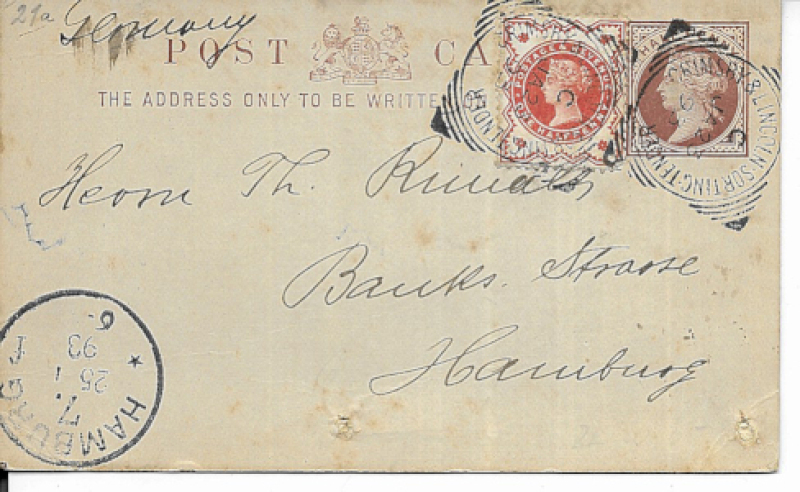 21a
Germany
POST CA
THE ADDRESS ONLY TO BE WRITTE
POSTAGE & REVENUE
ONE HALFPENNY
HALFPENNY
GRIMSBY & LINCOLN SORTING-TENDER
Herrn Th.
Banks. Strasse
Hamburg
HAMBURG
25 1
93
7.